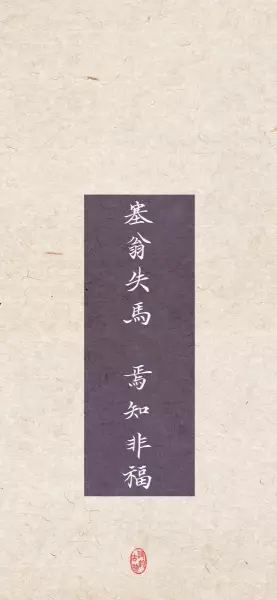 塞翁失馬 焉知非福